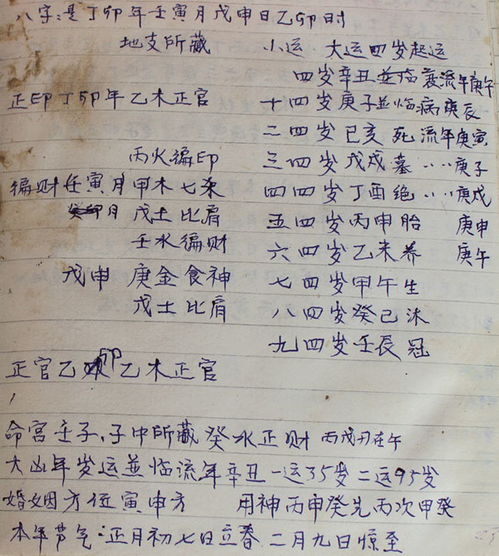 八字:是丁卯年壬寅月戊申日乙卯时
地支所藏 小运 大运四岁起运
四岁辛丑並临衰流年庚午
正印丁卯年乙木正官 十四岁庚子並临病庚辰
二四岁己亥 死 流年庚寅
丙火偏印 三四岁戊戌墓 ‥‥庚子
偏财壬寅月甲木七杀 四四岁丁酉绝‥‥庚戌
月 戊土比肩 五四岁丙申胎 庚申
壬水偏财 六四岁乙未养 庚午
戊申 庚金食神 七四岁甲午生
戊土比肩 八四岁癸巳沐
九四岁壬辰冠
正官乙卯乙木正官
命宫壬子,子中所藏癸水正财 丙戊刃在午
大凶年岁运並临流年辛丑一运35岁二运95岁
婚姻方位寅申方 用神丙甲癸先丙次甲癸
本年节气:正月初七日立春 二月九日惊至